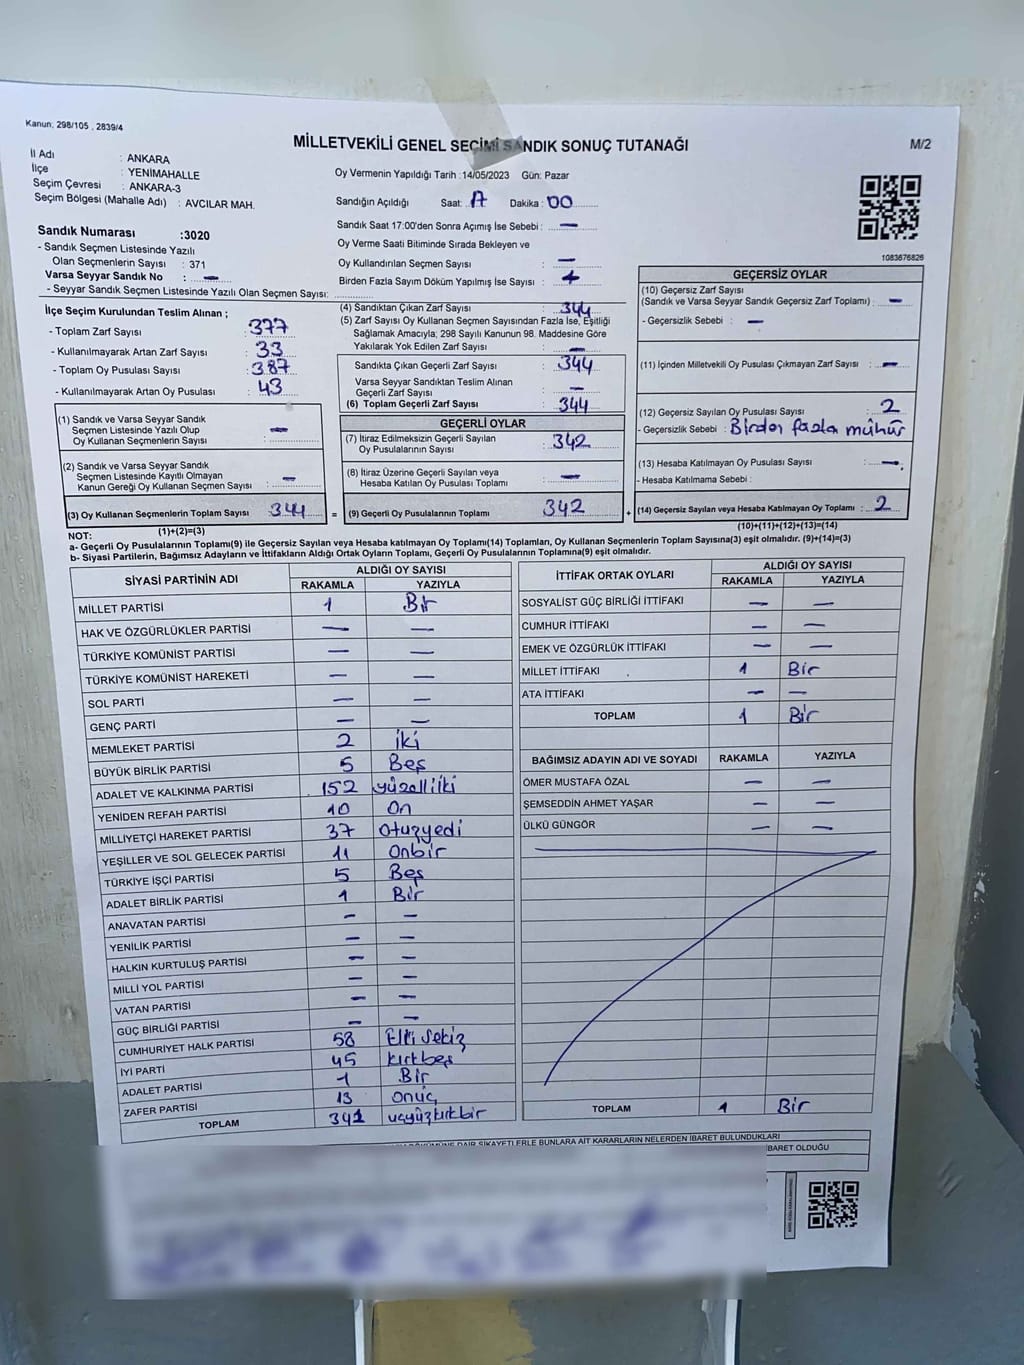 Kanun; 298/105 , 2839/4
MİLLETVEKİLİ GENEL SEÇİMİ SANDIK SONUÇ TUTANAĞI
M/2
İl Adı : ANKARA
İlçe : YENİMAHALLE
Seçim Çevresi : ANKARA-3
Seçim Bölgesi (Mahalle Adı) : AVCILAR MAH.
Oy Vermenin Yapıldığı Tarih :14/05/2023 Gün: Pazar
Sandığın Açıldığı Saat: Dakika : 00
Sandık Saat 17:00'den Sonra Açılmış İse Sebebi : —
Oy Verme Saati Bitiminde Sırada Bekleyen ve
Oy Kullandırılan Seçmen Sayısı : —
Birden Fazla Sayım Döküm Yapılmış İse Sayısı :
1083676826
Sandık Numarası :3020
- Sandık Seçmen Listesinde Yazılı
Olan Seçmenlerin Sayısı : 371
Varsa Seyyar Sandık No : —
- Seyyar Sandık Seçmen Listesinde Yazılı Olan Seçmen Sayısı:
İlçe Seçim Kurulundan Teslim Alınan ;
- Toplam Zarf Sayısı : 377
- Kullanılmayarak Artan Zarf Sayısı : 33
- Toplam Oy Pusulası Sayısı : 387
- Kullanılmayarak Artan Oy Pusulası : 43
(1) Sandık ve Varsa Seyyar Sandık
Seçmen Listesinde Yazılı Olup
Oy Kullanan Seçmenlerin Sayısı : —
(2) Sandık ve Varsa Seyyar Sandık
Seçmen Listesinde Kayıtlı Olmayan
Kanun Gereği Oy Kullanan Seçmen Sayısı : —
(3) Oy Kullanan Seçmenlerin Toplam Sayısı : 344
(1)+(2)=(3)
(4) Sandıktan Çıkan Zarf Sayısı : 344
(5) Zarf Sayısı Oy Kullanan Seçmen Sayısından Fazla İse, Eşitliği
Sağlamak Amacıyla; 298 Sayılı Kanunun 98. Maddesine Göre
Yakılarak Yok Edilen Zarf Sayısı : —
Sandıkta Çıkan Geçerli Zarf Sayısı : 344
Varsa Seyyar Sandıktan Teslim Alınan
Geçerli Zarf Sayısı : —
(6) Toplam Geçerli Zarf Sayısı : 344
GEÇERLİ OYLAR
(7) İtiraz Edilmeksizin Geçerli Sayılan
Oy Pusulalarının Sayısı : 342
(8) İtiraz Üzerine Geçerli Sayılan veya
Hesaba Katılan Oy Pusulası Toplamı : —
= (9) Geçerli Oy Pusulalarının Toplamı : 342
GEÇERSİZ OYLAR
(10) Geçersiz Zarf Sayısı
(Sandık ve Varsa Seyyar Sandık Geçersiz Zarf Toplamı) : —
- Geçersizlik Sebebi : —
(11) İçinden Milletvekili Oy Pusulası Çıkmayan Zarf Sayısı : —
(12) Geçersiz Sayılan Oy Pusulası Sayısı : 2
- Geçersizlik Sebebi : Birden fazla mühür
(13) Hesaba Katılmayan Oy Pusulası Sayısı : —
- Hesaba Katılmama Sebebi :
+ (14) Geçersiz Sayılan veya Hesaba Katılmayan Oy Toplamı : 2
(10)+(11)+(12)+(13)=(14)
NOT:
a- Geçerli Oy Pusulalarının Toplamı(9) ile Geçersiz Sayılan veya Hesaba katılmayan Oy Toplamı(14) Toplamları, Oy Kullanan Seçmenlerin Toplam Sayısına(3) eşit olmalıdır. (9)+(14)=(3)
b- Siyasi Partilerin, Bağımsız Adayların ve İttifakların Aldığı Ortak Oyların Toplamı, Geçerli Oy Pusulalarının Toplamına(9) eşit olmalıdır.
SİYASİ PARTİNİN ADI ALDIĞI OY SAYISI
RAKAMLA YAZIYLA
MİLLET PARTİSİ 1 Bir
HAK VE ÖZGÜRLÜKLER PARTİSİ — —
TÜRKİYE KOMÜNİST PARTİSİ — —
TÜRKİYE KOMÜNİST HAREKETİ — —
SOL PARTİ — —
GENÇ PARTİ — —
MEMLEKET PARTİSİ 2 iki
BÜYÜK BİRLİK PARTİSİ 5 Beş
ADALET VE KALKINMA PARTİSİ 152 yüzelliiki
YENİDEN REFAH PARTİSİ 10 On
MİLLİYETÇİ HAREKET PARTİSİ 37 otuzyedi
YEŞİLLER VE SOL GELECEK PARTİSİ 11 Onbir
TÜRKİYE İŞÇİ PARTİSİ 5 Beş
ADALET BİRLİK PARTİSİ 1 Bir
ANAVATAN PARTİSİ — —
YENİLİK PARTİSİ — —
HALKIN KURTULUŞ PARTİSİ — —
MİLLİ YOL PARTİSİ — —
VATAN PARTİSİ — —
GÜÇ BİRLİĞİ PARTİSİ — —
CUMHURİYET HALK PARTİSİ 58 Elli sekiz
İYİ PARTİ 45 kırkbeş
ADALET PARTİSİ 1 Bir
ZAFER PARTİSİ 13 onüç
TOPLAM 341 üçyüzkırkbir
İTTİFAK ORTAK OYLARI ALDIĞI OY SAYISI
RAKAMLA YAZIYLA
SOSYALİST GÜÇ BİRLİĞİ İTTİFAKI — —
CUMHUR İTTİFAKI — —
EMEK VE ÖZGÜRLÜK İTTİFAKI — —
MİLLET İTTİFAKI 1 Bir
ATA İTTİFAKI — —
TOPLAM 1 Bir
BAĞIMSIZ ADAYIN ADI VE SOYADI RAKAMLA YAZIYLA
ÖMER MUSTAFA ÖZAL — —
ŞEMSEDDİN AHMET YAŞAR — —
ÜLKÜ GÜNGÖR — —
TOPLAM 1 Bir
DÖKÜMÜNE DAİR ŞİKAYETLERLE BUNLARA AİT KARARLARIN NELERDEN İBARET BULUNDUKLARI
İBARET OLDUĞU